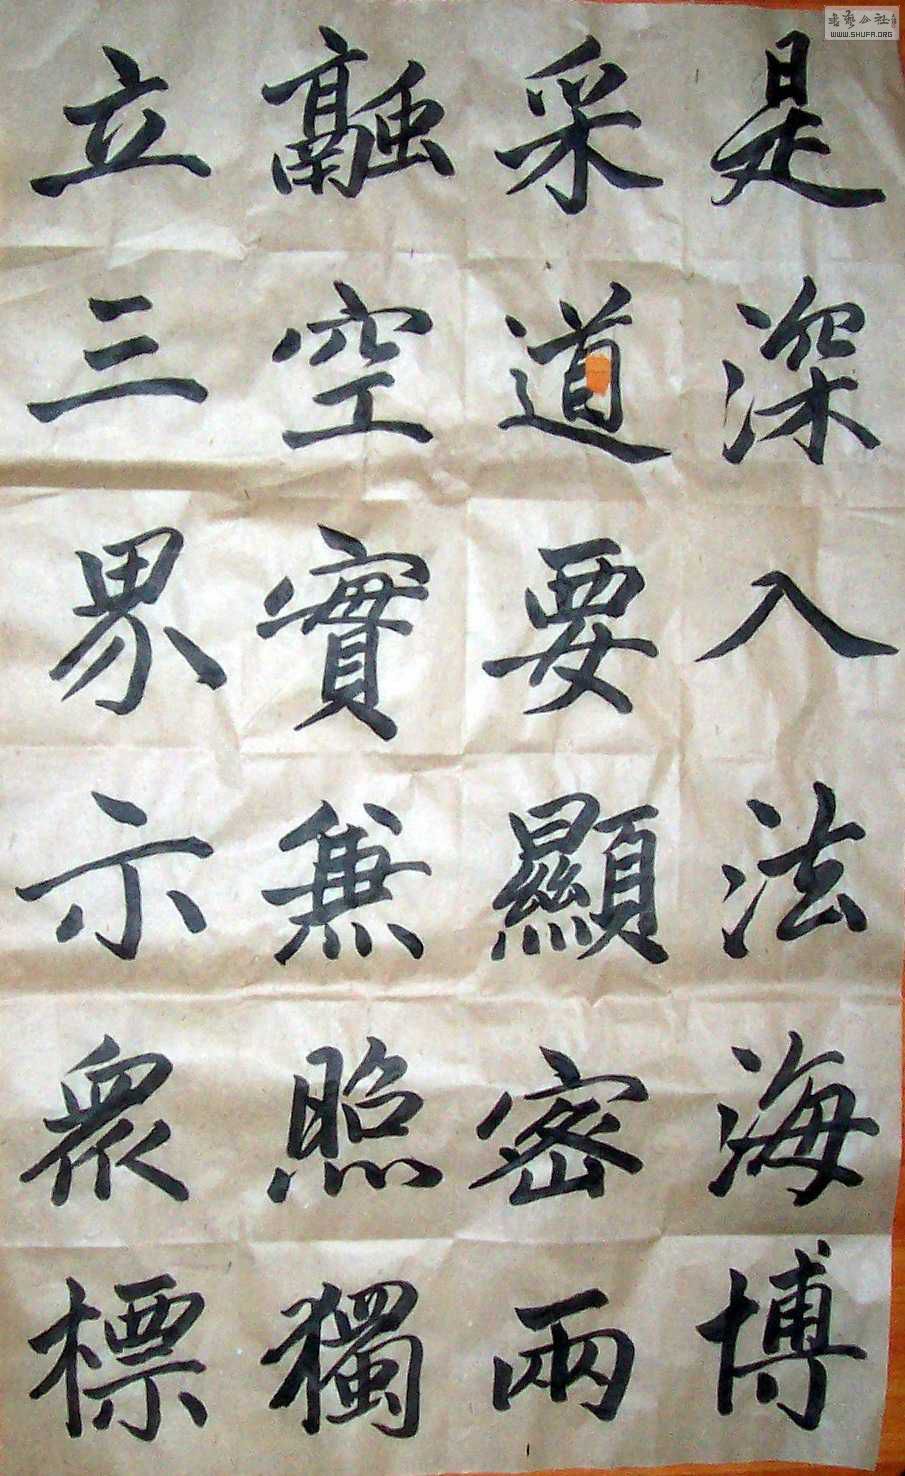 是深入法海博
采道要顯密兩
融空實兼照獨
立三界示眾標
書藝公社
WWW.SHUFA.ORG